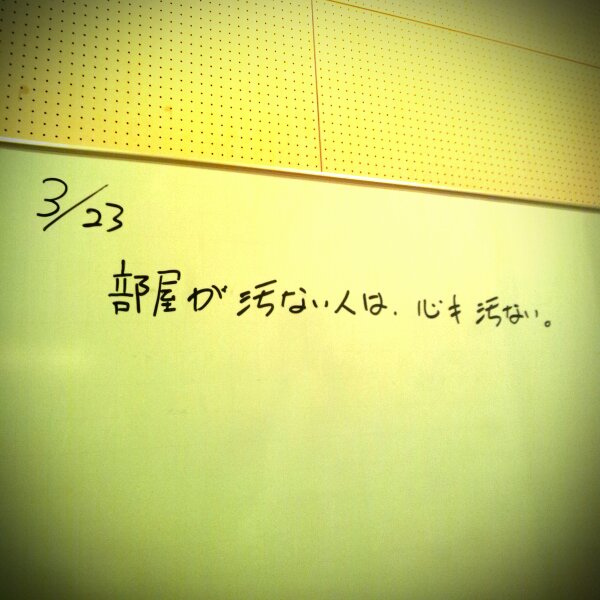 3/23
部屋が汚ない人は、心も汚ない。